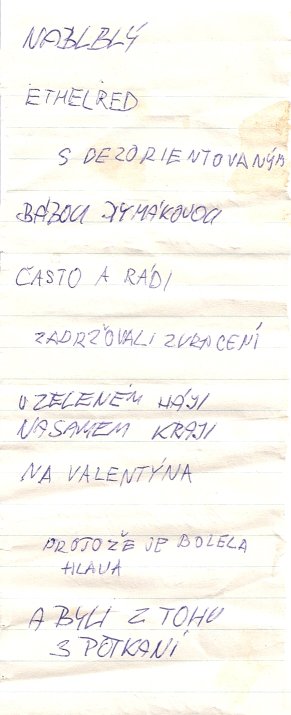 NABLBLÝ
ETHELRED
S DEZORIENTOVANÝM
BÁZOU DYMÁKOVOU
ČASTO A RÁDI
ZADRŽOVALI ZVRACENÍ
V ZELENÉM HÁJI
NA SAMEM KRAJI
NA VALENTÝNA
PROTOŽE JE BOLELA
HLAVA
A BYLI Z TOHO
3 POTKANÍ